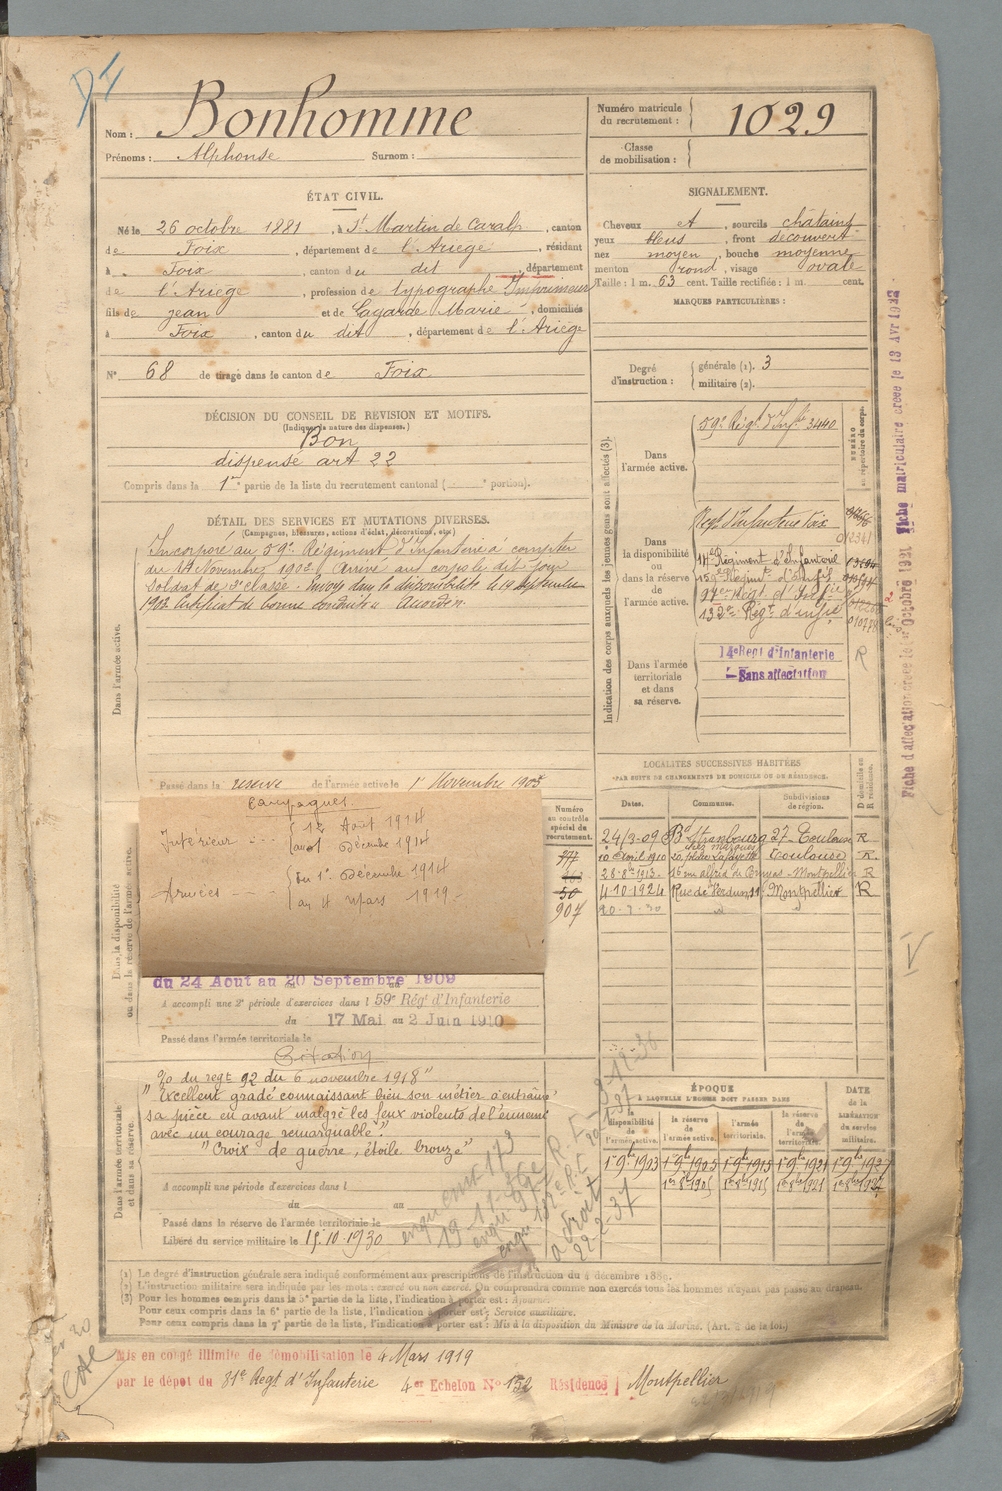 Nom : Bonhomme
Prénoms : Alphonse Surnom :
Numéro matricule
du recrutement : 1029
Classe
de mobilisation :
ÉTAT CIVIL.
Né le 26 octobre 1881, à St Martin de Caralp, canton
de Foix, département de l'Ariège, résidant
à Foix, canton du dit, département
de l'Ariège, profession de typographe Imprimeur
fils de Jean et de Lagarde Marie, domiciliés
à Foix, canton du dit, département de l'Ariège
N° 68 de tirage dans le canton de Foix
SIGNALEMENT.
Cheveux et, sourcils châtains
yeux bleus, front découvert
nez moyen, bouche moyenne
menton rond, visage ovale
Taille : 1 m. 63 cent. Taille rectifiée : 1 m. cent.
MARQUES PARTICULIÈRES :
Degré
d'instruction :
générale (1). 3
militaire (2).
DÉCISION DU CONSEIL DE REVISION ET MOTIFS.
(Indiquer la nature des dispenses.)
Bon
dispensé art 22
Compris dans la 1re partie de la liste du recrutement cantonal ( e portion).
DÉTAIL DES SERVICES ET MUTATIONS DIVERSES.
(Campagnes, blessures, actions d'éclat, décorations, etc.)
Incorporé au 59e Régiment d'Infanterie à compter
du 14 Novembre 1902. Arrivé au corps le dit jour
soldat de 2e classe. Envoyé dans la disponibilité le 19 septembre
1903 Certificat de bonne conduite Accordé.
Dans l'armée active.
Passé dans la réserve de l'armée active le 1er Novembre 1905
Indication des corps auxquels les jeunes gens sont affectés (3).
NUMÉRO
au répertoire du corps.
Dans
l'armée active.
59e Régt d'Infie 3440
Dans
la disponibilité
ou
dans la réserve
de
l'armée active.
Regt d'Infanterie Foix
012341
14e Régiment d'Infanterie
15e Régimt d'Infie
97e Régt d'Infie
132e Régt d'infie
Dans l'armée
territoriale
et dans
sa réserve.
14e Regt d'Infanterie
Sans affectation
R
Fiche d'affectation créée le 1er Octobre 1921 Fiche matriculaire créée le 13 Avr 1922
Campagnes.
Intérieur { 12 Août 1914
au 1 Décembre 1914
Armées { du 1er Décembre 1914
au 4 Mars 1919
Dans la disponibilité
ou dans la réserve de l'armée active.
du 24 Aout au 20 Septembre 1909
A accompli une 2e période d'exercices dans l 59e Régt d'Infanterie
du 17 Mai au 2 Juin 1910
Passé dans l'armée territoriale le
Numéro
au contrôle
spécial du
recrutement.
50
907
LOCALITÉS SUCCESSIVES HABITÉES
PAR SUITE DE CHANGEMENTS DE DOMICILE OU DE RÉSIDENCE.
Dates. Communes. Subdivisions
de région. D domicile ou
R résidence.
24/3-09 Bd Strasbourg 27 Toulouse R
10 avril 1910 20, place Lafayette Toulouse R.
28-8-1913 Montpellier R
4.10.1924 Rue de Verdun, 11 Montpellier R
20-7-30 " "
Citation
"Excellent gradé connaissant bien son métier a entraîné
sa pièce en avant malgré les feux violents de l'ennemi
avec un courage remarquable."
"Croix de guerre, étoile bronze"
Dans l'armée territoriale
et dans sa réserve.
A accompli une période d'exercices dans l
du au
Passé dans la réserve de l'armée territoriale le
Libéré du service militaire le 15.10.1930
ÉPOQUE
A LAQUELLE L'HOMME DOIT PASSER DANS
la
disponibilité
de
l'armée active.
la réserve
de
l'armée active.
l'armée
territoriale.
la réserve
de
l'armée
territoriale.
DATE
de la
LIBÉRATION
du
service
militaire.
1er 9bre 1903 1er 9bre 1905 1er 9bre 1915 1er 9bre 1921 1er 9bre 1927
1er 8bre 1905 1er 8bre 1915 1er 8bre 1921 1er 8bre 1927
(1) Le degré d'instruction générale sera indiqué conformément aux prescriptions de l'instruction du 4 décembre 1889.
(2) L'instruction militaire sera indiquée par les mots : exercé ou non exercé. On comprendra comme non exercés tous les hommes n'ayant pas passé au drapeau.
(3) Pour les hommes compris dans la 5e partie de la liste, l'indication à porter est : Ajourné.
Pour ceux compris dans la 6e partie de la liste, l'indication à porter est : Service auxiliaire.
Pour ceux compris dans la 7e partie de la liste, l'indication à porter est : Mis à la disposition du Ministre de la Marine. (Art. 2 de la loi.)
Mis en congé illimité de démobilisation le 4 Mars 1919
par le dépot du 81e Regt d'Infanterie 4er Echelon N° 132 Résidence Montpellier